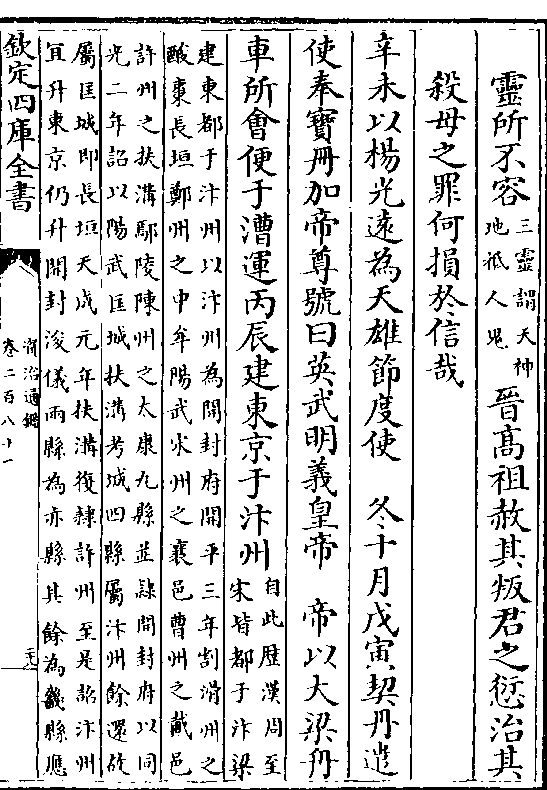 靈所不容三靈謂天神地祇人鬼晉高祖赦其叛君之愆治其
殺母之罪何損於信哉
辛未以楊光遠為天雄節度使　冬十月戊寅契丹遣
使奉寶冊加帝尊號曰英武明義皇帝　帝以大梁舟
車所會便于漕運丙辰建東京于汴州自此歷漢周至宋皆都于汴梁
建東都于汴州以汴州為開封府開平三年割滑州之
酸棗長垣鄭州之中牟陽武宋州之襄邑曹州之戴邑
許州之扶溝鄢陵陳州之太康九縣並隷開封府以同
光二年詔以陽武匡城扶溝考城四縣屬汴州餘還故
屬匡城即長垣天成元年扶溝復隷許州至是詔汴州
宜升東京仍升開封浚儀兩縣為赤縣其餘為畿縣應
欽定四庫全書
資治通鑑
卷二百八十一